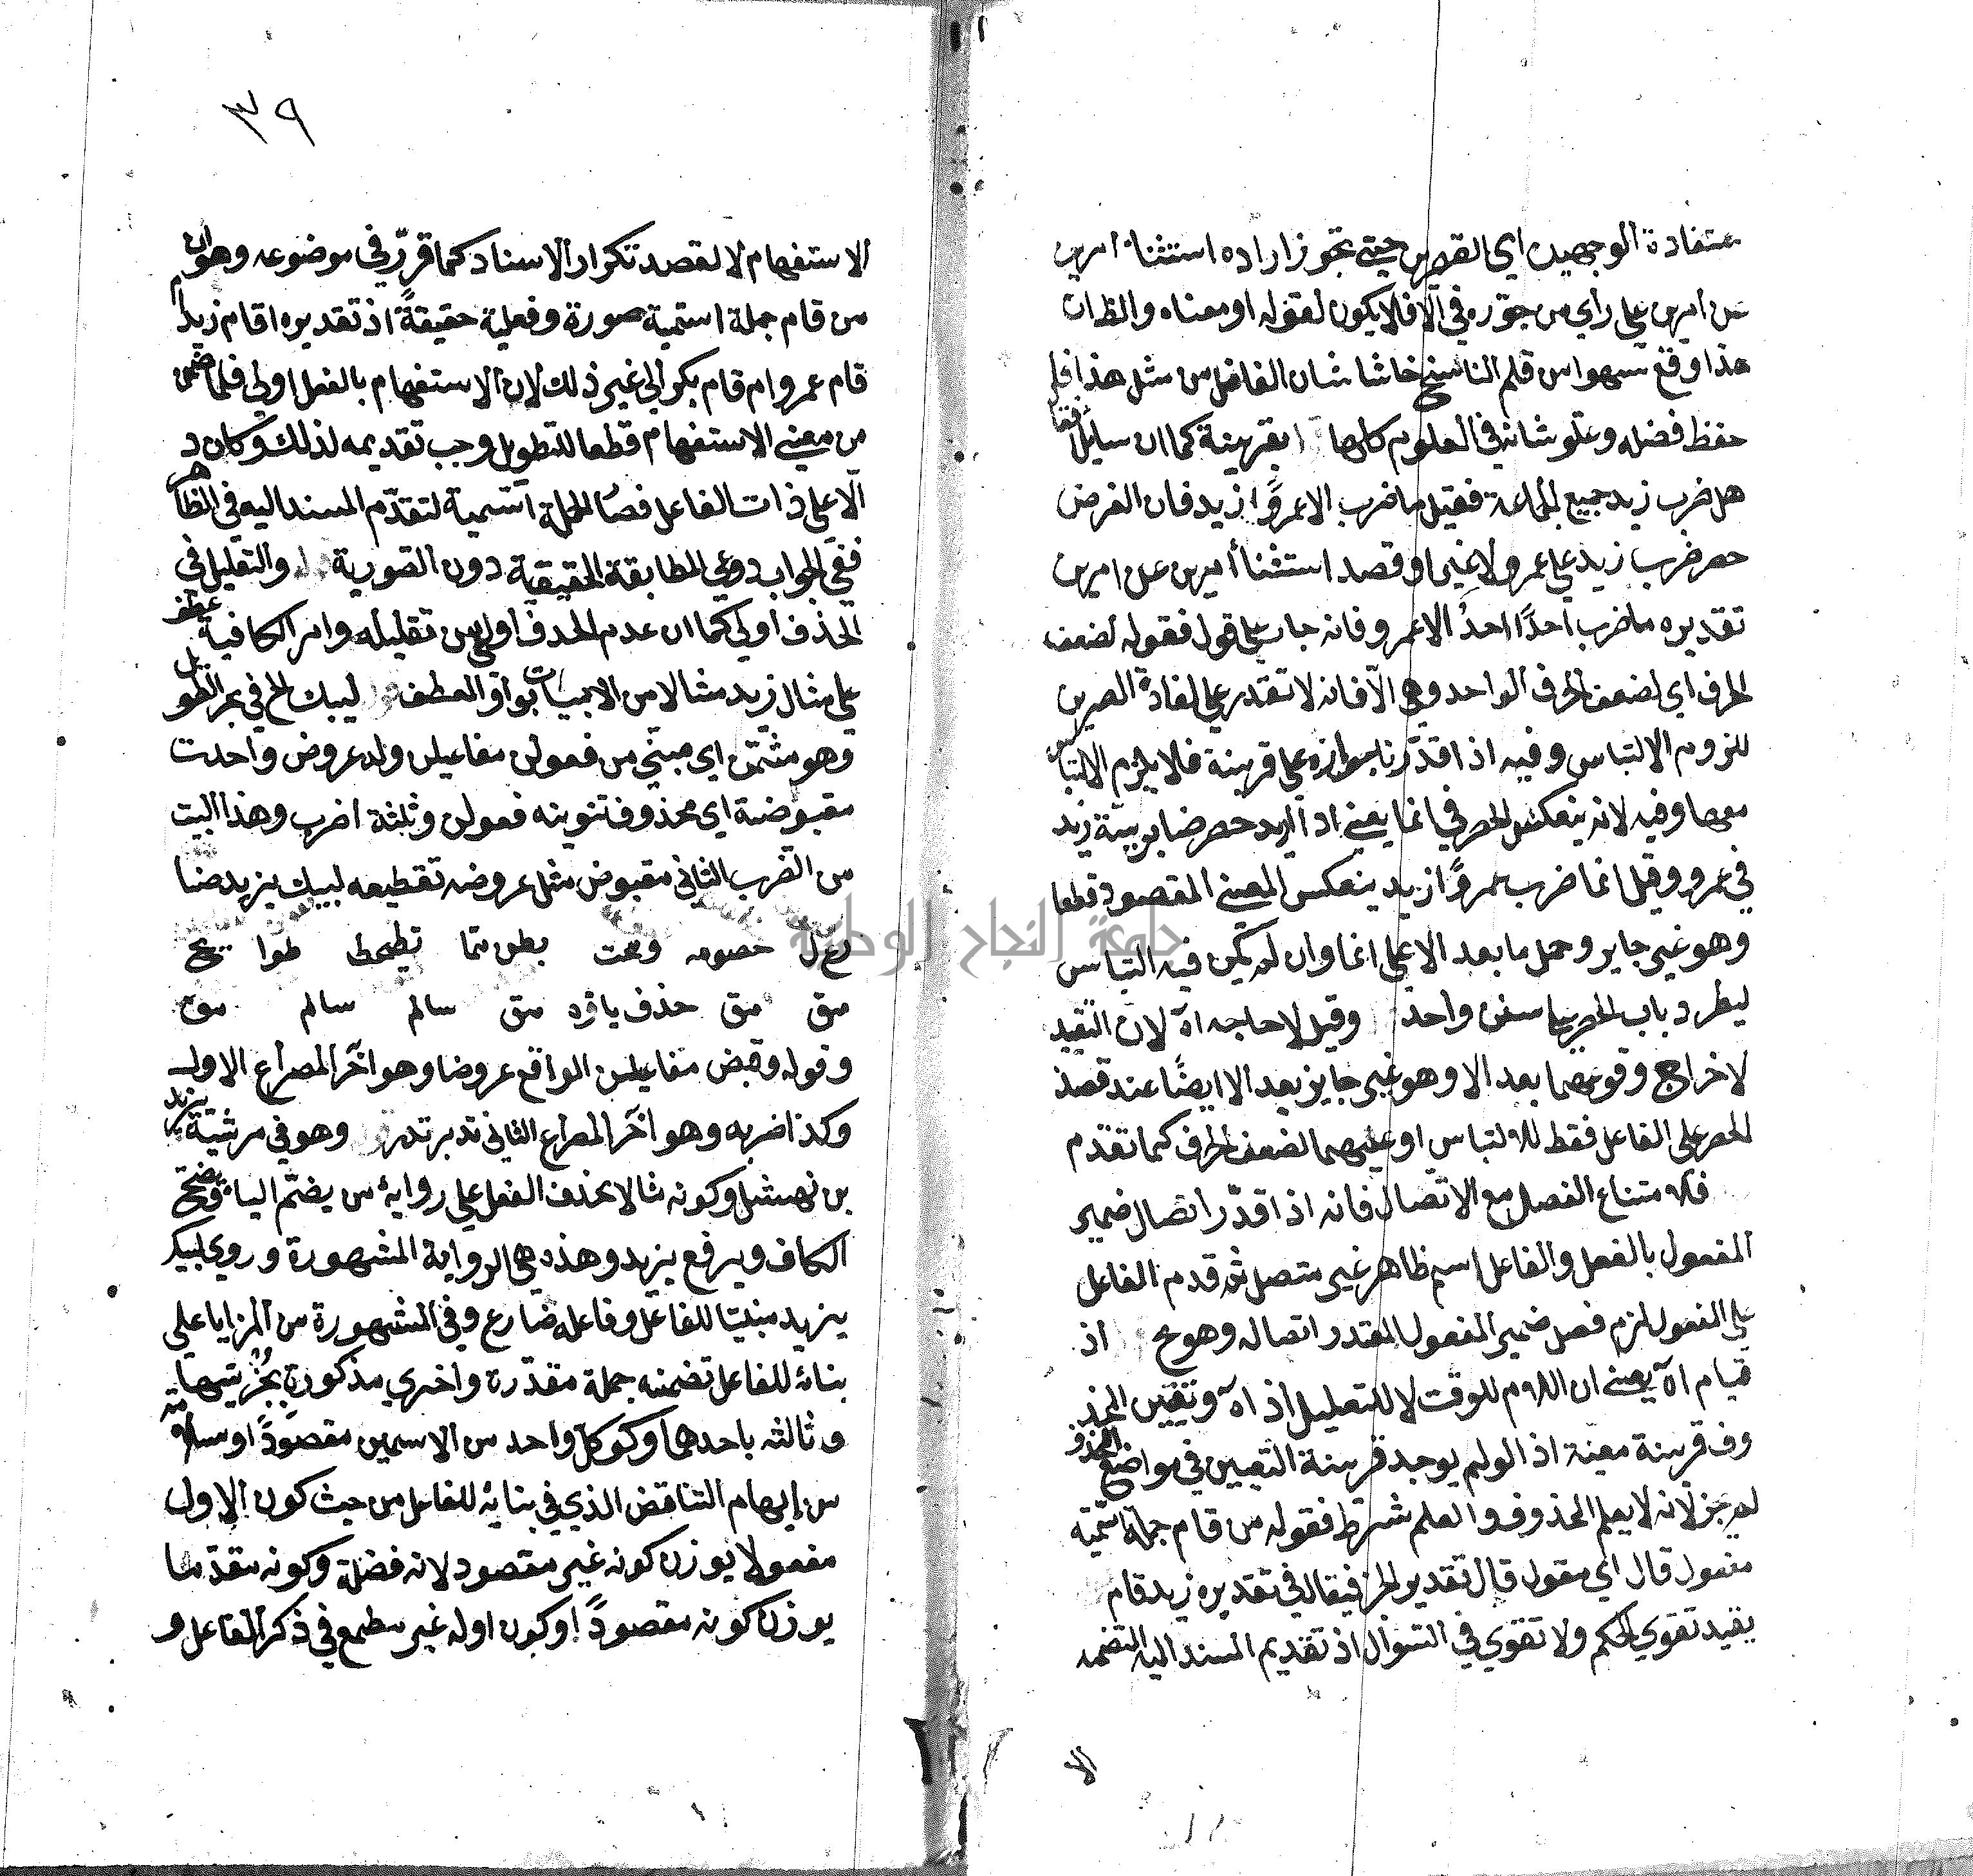 مستفادة الوجهين اي القصرين حيتى تجوز اراده استثنا امرين
من امرين علي راي من جوزه في الا فلا يكون لقوله او معناه والظان
هذا وقع سهوا من قلم الناسخ حاشا شان الفاضل من مثل هذا فلم
حفظ فضله وعلو شانه في العلوم كلها بقرينة كما ان سايل قا
هل ضرب زيد جميع الجماعة فقيل ما ضرب الا عمروًا زيد فان الغرض
حصر ضرب زيد علي عمرو لا غير او قصد استثنا أمرين عن امرين
تقديره ما ضرب احدًا احدُ الا عمرو فانه جا علي قول فقوله لضعف
الحرف اي لضعف الحرف الواحد وهي الا فانه لا تقدر علي افادة الصرين
للزوم الالتباس وفيه اذا قدرنا جوازه علي قرينة فلا يلزم الالتبا
معها وفيه لانه ينعكس الحصر في انما يعني اذا اريد حصر ضاربية زيد
في عمرو وقيل انما ضرب عمروًا زيد ينعكس المعني المقصود قطعا
وهو غير جايز وحمل ما بعد الا علي انما وان لم يكن فيه التباس
ليطرد باب الحصر علي سنن واحد وقيل لا حاجه اه لان التقييد
لاخراج وقوعهما بعد الا وهو غير جايز بعد الا ايضًا عند قصد
الحصر علي الفاعل فقط للالتباس او عليهما لضعف الحرف كما تقدم
فلامتناع الفصل مع الاتصال فانه اذا قدّر اتصال ضمير
المفعول بالفعل والفاعل اسم ظاهر غير متصل ثم قدم الفاعل
علي المفعول لزم فصل ضمير المفعول المقدر اتصاله وهو مح اذ
قيام اه يعني ان اللام للوقت لا للتعليل اذ اه وتعيين المحذ
وف قرينة معينة اذ الو لم يوجد قرينة التعيين في مواضع الحذف
لم يجز لانه لا يعلم المحذوف والعلم شرط فقوله من قام جملة اسمية
مفعول قال اي مقول قال تقدير الخبر فيقال في تقديره زيد قام
يفيد تقوي الحكم ولا تقوي في السوال اذ تقديم المسند اليه لتضمنه
الا
٣٩
الاستفهام لا لقصد تكرار الاسناد كما قرر في موضوعه وهو ان
من قام جملة اسمية صورة وفعلية حقيقةً اذ تقديره اقام زيد ام
قام عمرو ام قام بكر الي غير ذلك لان الاستفهام بالفعل اولي فلما ضمن
من معني الاستفهام قطعا للتطويل وجب تقديمه لذلك وكان د
الا علي ذات الفاعل فصار الجملة اسمية لتقدّم المسند اليه في الظاهر
ففي الجواب روعي المطابقة الحقيقية دون الصورية والتقليل في
الحذف اولي كما ان عدم الحذف اولي من تقليله وامر الكافية عطف
علي مثال زيد مثالا من الابيات بواو العطف ليبك الخ في بحر الطويل
وهو مثمّن اي مبني من فعولن مفاعيلن وله عروض واحدت
مقبوضة اي محذوفة نوينه فعولن وثلثة اضرب وهذا البيت
من الضرب الثاني مقبوض مثل عروضه تقطيعه ليبك يزيد ضا
رع ل خصومه ومخت بطن مما تطيحط طوا يح
مق مق حذف ياؤه مق سالم سالم مق
وقوله وقبض مفاعيلن الواقع عروضا وهو اخر المصراع الاول
وكذا ضربه وهو اخر المصراع الثاني تدبر تدر وهو في مرثية يزيد
بن نهشل وكونه مثالا بحذف الفعل علي رواية من يضمّ الياء وفتح
الكاف ويرفع يزيد وهذه هي الرواية المشهورة وروي ليبك
يزيد مبنيا للفاعل وفاعله ضارع وفي المشهورة من المزايا علي
بنائه للفاعل تضمنه جملة مقدّرة واخري مذكورة بجزئيتيها
وثالثه باحدهما وكوكل واحد من الاسمين مقصودًا وسلامته
من إيهام التناقض الذي في بنايه للفاعل من حيث كون الاول
مفعولا يوزن كونه غير مقصود لانه فضلة وكونه مقدّما
يوزن كونه مقصودًا وكون اوله غير مطمع في ذكر الفاعل و
جامعة النجاح الوطنية